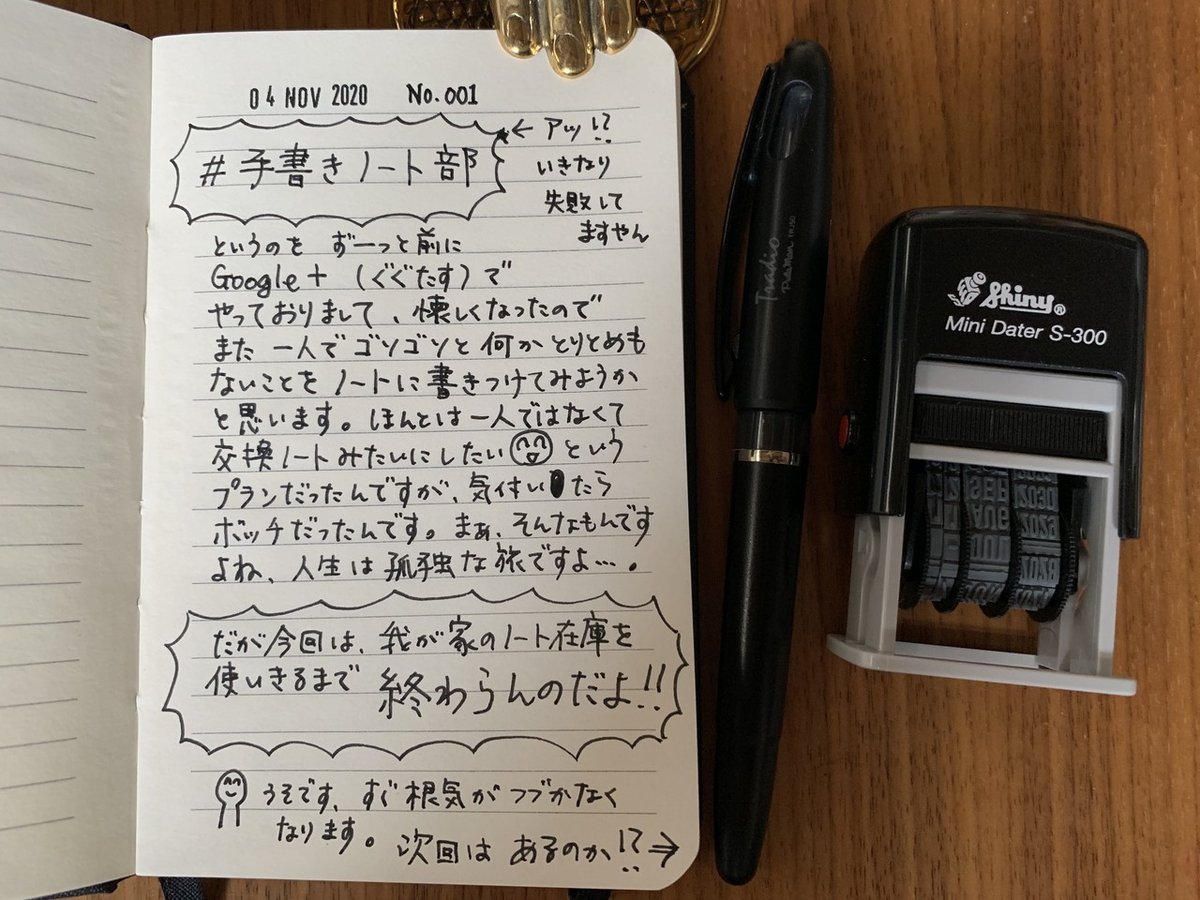 04 NOV 2020 No.001
#手書きノート部
← アッ!?
いきなり
失敗して
ますやん
というのを ずーっと前に
Google+ (ぐぐたす)で
やっておりまして、懐しくなったので
また一人でゴソゴソと何かとりとめも
ないことをノートに書きつけてみようか
と思います。ほんとは一人ではなくて
交換ノートみたいにしたい という
プランだったんですが、気付いたら
ボッチだったんです。まぁ、そんなもんです
よね、人生は孤独な旅ですよ…。
だが今回は、我が家のノート在庫を
使いきるまで 終わらんのだよ!!
うそです、すぐ根気がつづかなく
なります。
次回は あるのか!? ⇒
Tradio
Pulaman TRJ50
Shiny®
Mini Dater S-300
SEP
AUG
2030
2029
2028